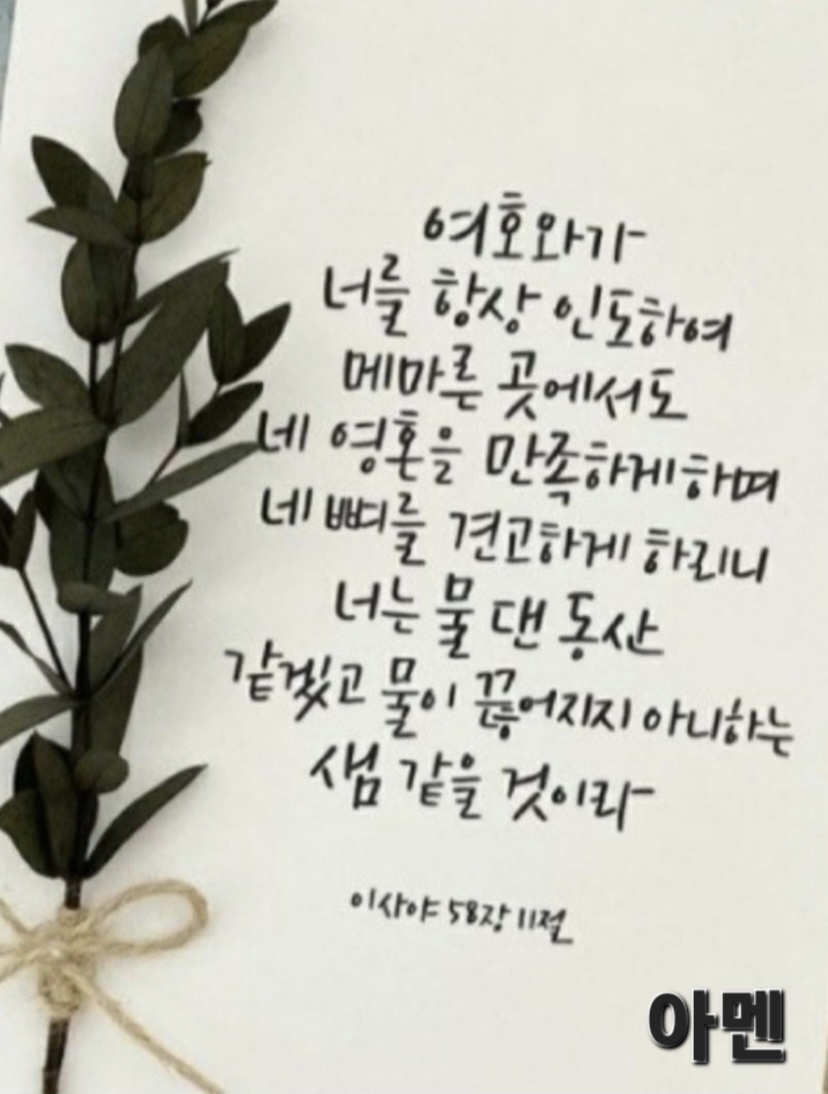 여호와가
너를 항상 인도하여
메마른 곳에서도
네 영혼을 만족하게하며
네 뼈를 견고하게 하리니
너는 물 댄 동산
같겠고 물이 끊어지지 아니하는
샘 같을 것이라
이사야 58장 11절
아멘